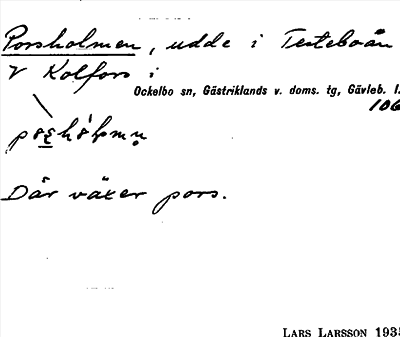 Porsholmen, udde i Testeboån
V Kolfors i
Ockelbo sn, Gästriklands v. doms. tg, Gävleb. l.
106
Där växer pors.
LARS LARSSON 1935